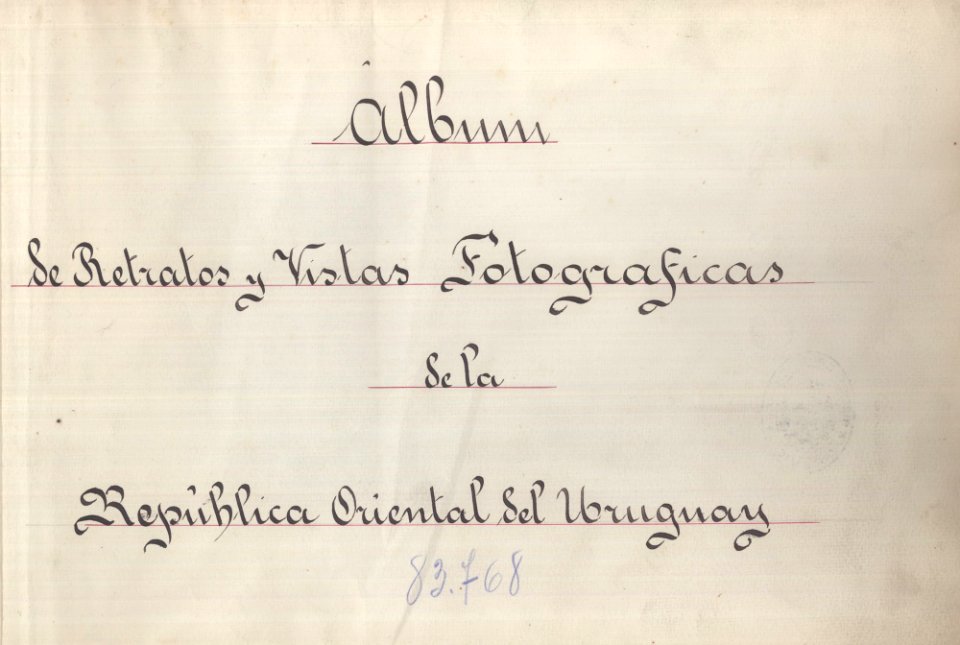 Álbum
de Retratos y Vistas Fotograficas
de la
República Oriental del Uruguay
83.768